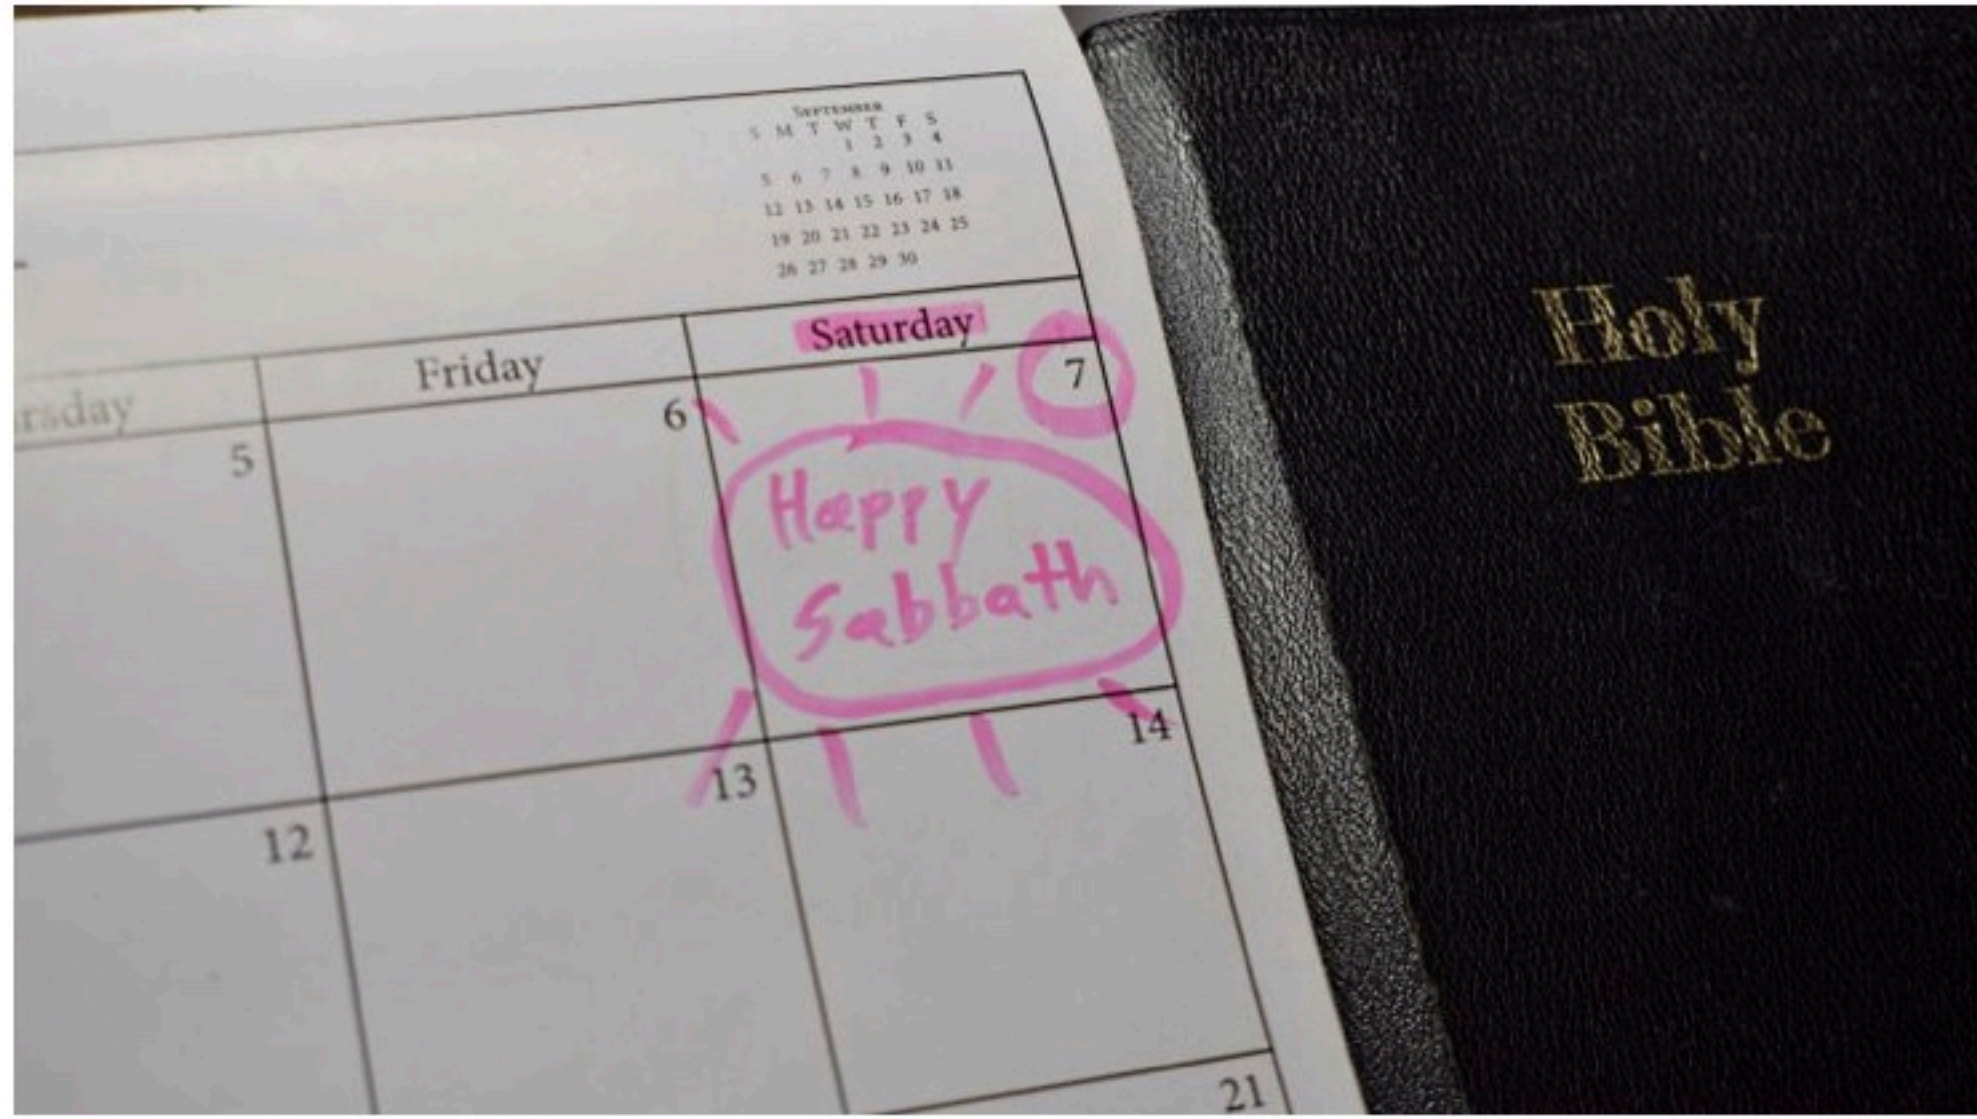 September
S M T W T F S
1 2 3 4
5 6 7 8 9 10 11
12 13 14 15 16 17 18
19 20 21 22 23 24 25
26 27 28 29 30
rsday Friday Saturday
5 6 7
Happy
Sabbath
12 13 14
21
Holy
Bible